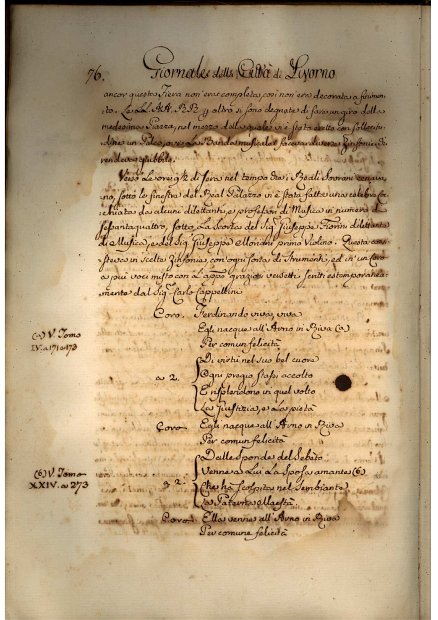 76. Giornale della Città di Livorno
ancor questa Fiera non era completa, così non era decorata a finimento.
Le LL. AA. RR. si sono degnate di fare un giro della
medesima Piazza, nel mezzo della quale vi è stato eretto con sollecitudine
un Palco, ove la Banda musicale faceva diverse Zinfonie
Verso le ore 9½ di sera nel tempo che i Reali Sovrani cenavano,
sotto le finestre del Real Palazzo vi è stata fatta una celebre
da alcuni dilettanti, e professori di Musica in numero di
sepantaquattro, sotto la scorta del Sig. Giuseppe Fiorini dilettante
di Musica, e del Sig. Giuseppe Morioni primo Violino. Questa consisteva
in scelte Zinfonie, con ogni sorta di Strumenti, ed in un Coro
a più voci misto con i graziosi versetti scritti estemporaneamente
dal Sig. Carlo Cappellini
Coro. Ferdinando viva, viva
(a) V. Tomo
IV. a 171 e 173
Egli nacque all'Arno in Riva (a)
Per comun felicità
a 2. Di virtù nel suo bel cuore
Ogni pregio stassi accolto
E risplendono in quel volto
La Giustizia, e la pietà
Coro Egli nacque all'Arno in Riva
Per comun felicità
(b) V. Tomo
XXIV. a 273
a 2. Dalle Sponde del Sebeto
Venne a Lui la Sposa amante (b)
Che ha scolpita nel Sembiante
La Paterna Maestà
Coro Ella venne all'Arno in Riva
Per comun felicità